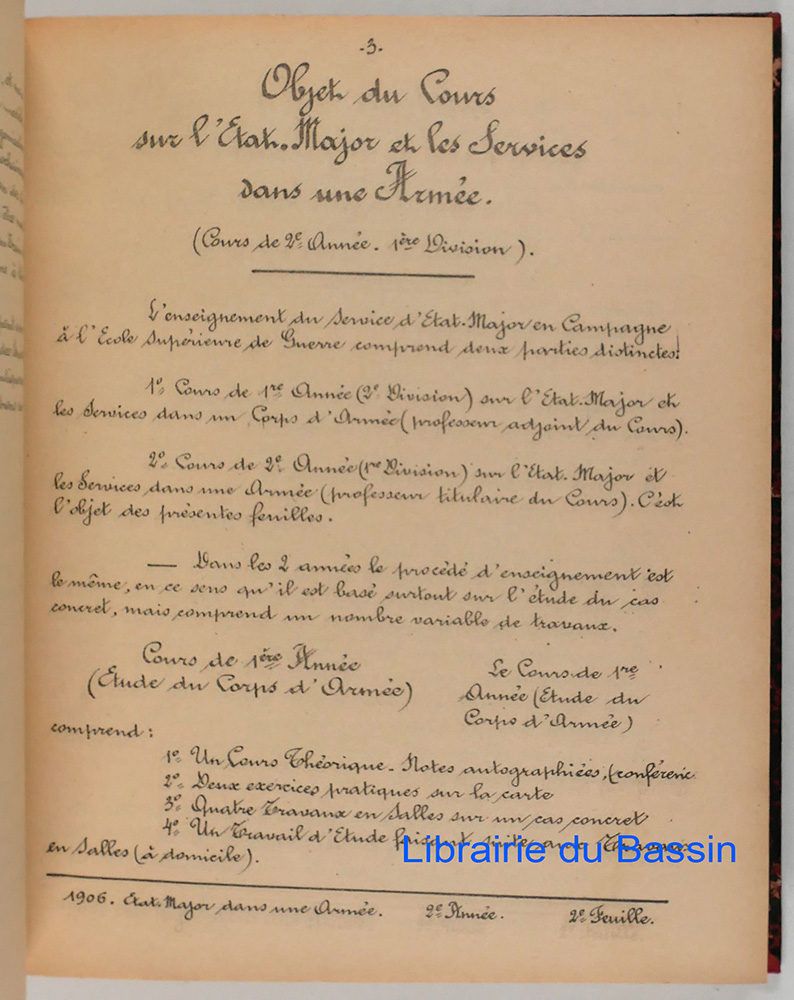 -3-
Objet du Cours
sur l'Etat-Major et les Services
dans une Armée.
(Cours de 2e Année. 1ère Division).
L'enseignement du Service d'Etat-Major en Campagne
à l'Ecole Supérieure de Guerre comprend deux parties distinctes:
1º Cours de 1re Année (2e Division) sur l'Etat-Major et
les Services dans un Corps d'Armée (professeur adjoint du Cours).
2º Cours de 2e Année (1re Division) sur l'Etat-Major et
les Services dans une Armée (professeur titulaire du Cours). C'est
l'objet des présentes feuilles.
— Dans les 2 années le procédé d'enseignement est
le même, en ce sens qu'il est basé surtout sur l'étude du cas
concret, mais comprend un nombre variable de travaux.
Cours de 1ère Année
(Etude du Corps d'Armée)
Le Cours de 1re
Année (Etude du
Corps d'Armée)
comprend:
1º Un Cours Théorique. Notes autographiées, (conférenc
2º Deux exercices pratiques sur la carte
3º Quatre Travaux en Salles sur un cas concret
4º Un Travail d'Etude faisant suite aux Travaux
en Salles (à domicile).
Librairie du Bassin
1906. Etat-Major dans une Armée. 2e Année. 2e Feuille.